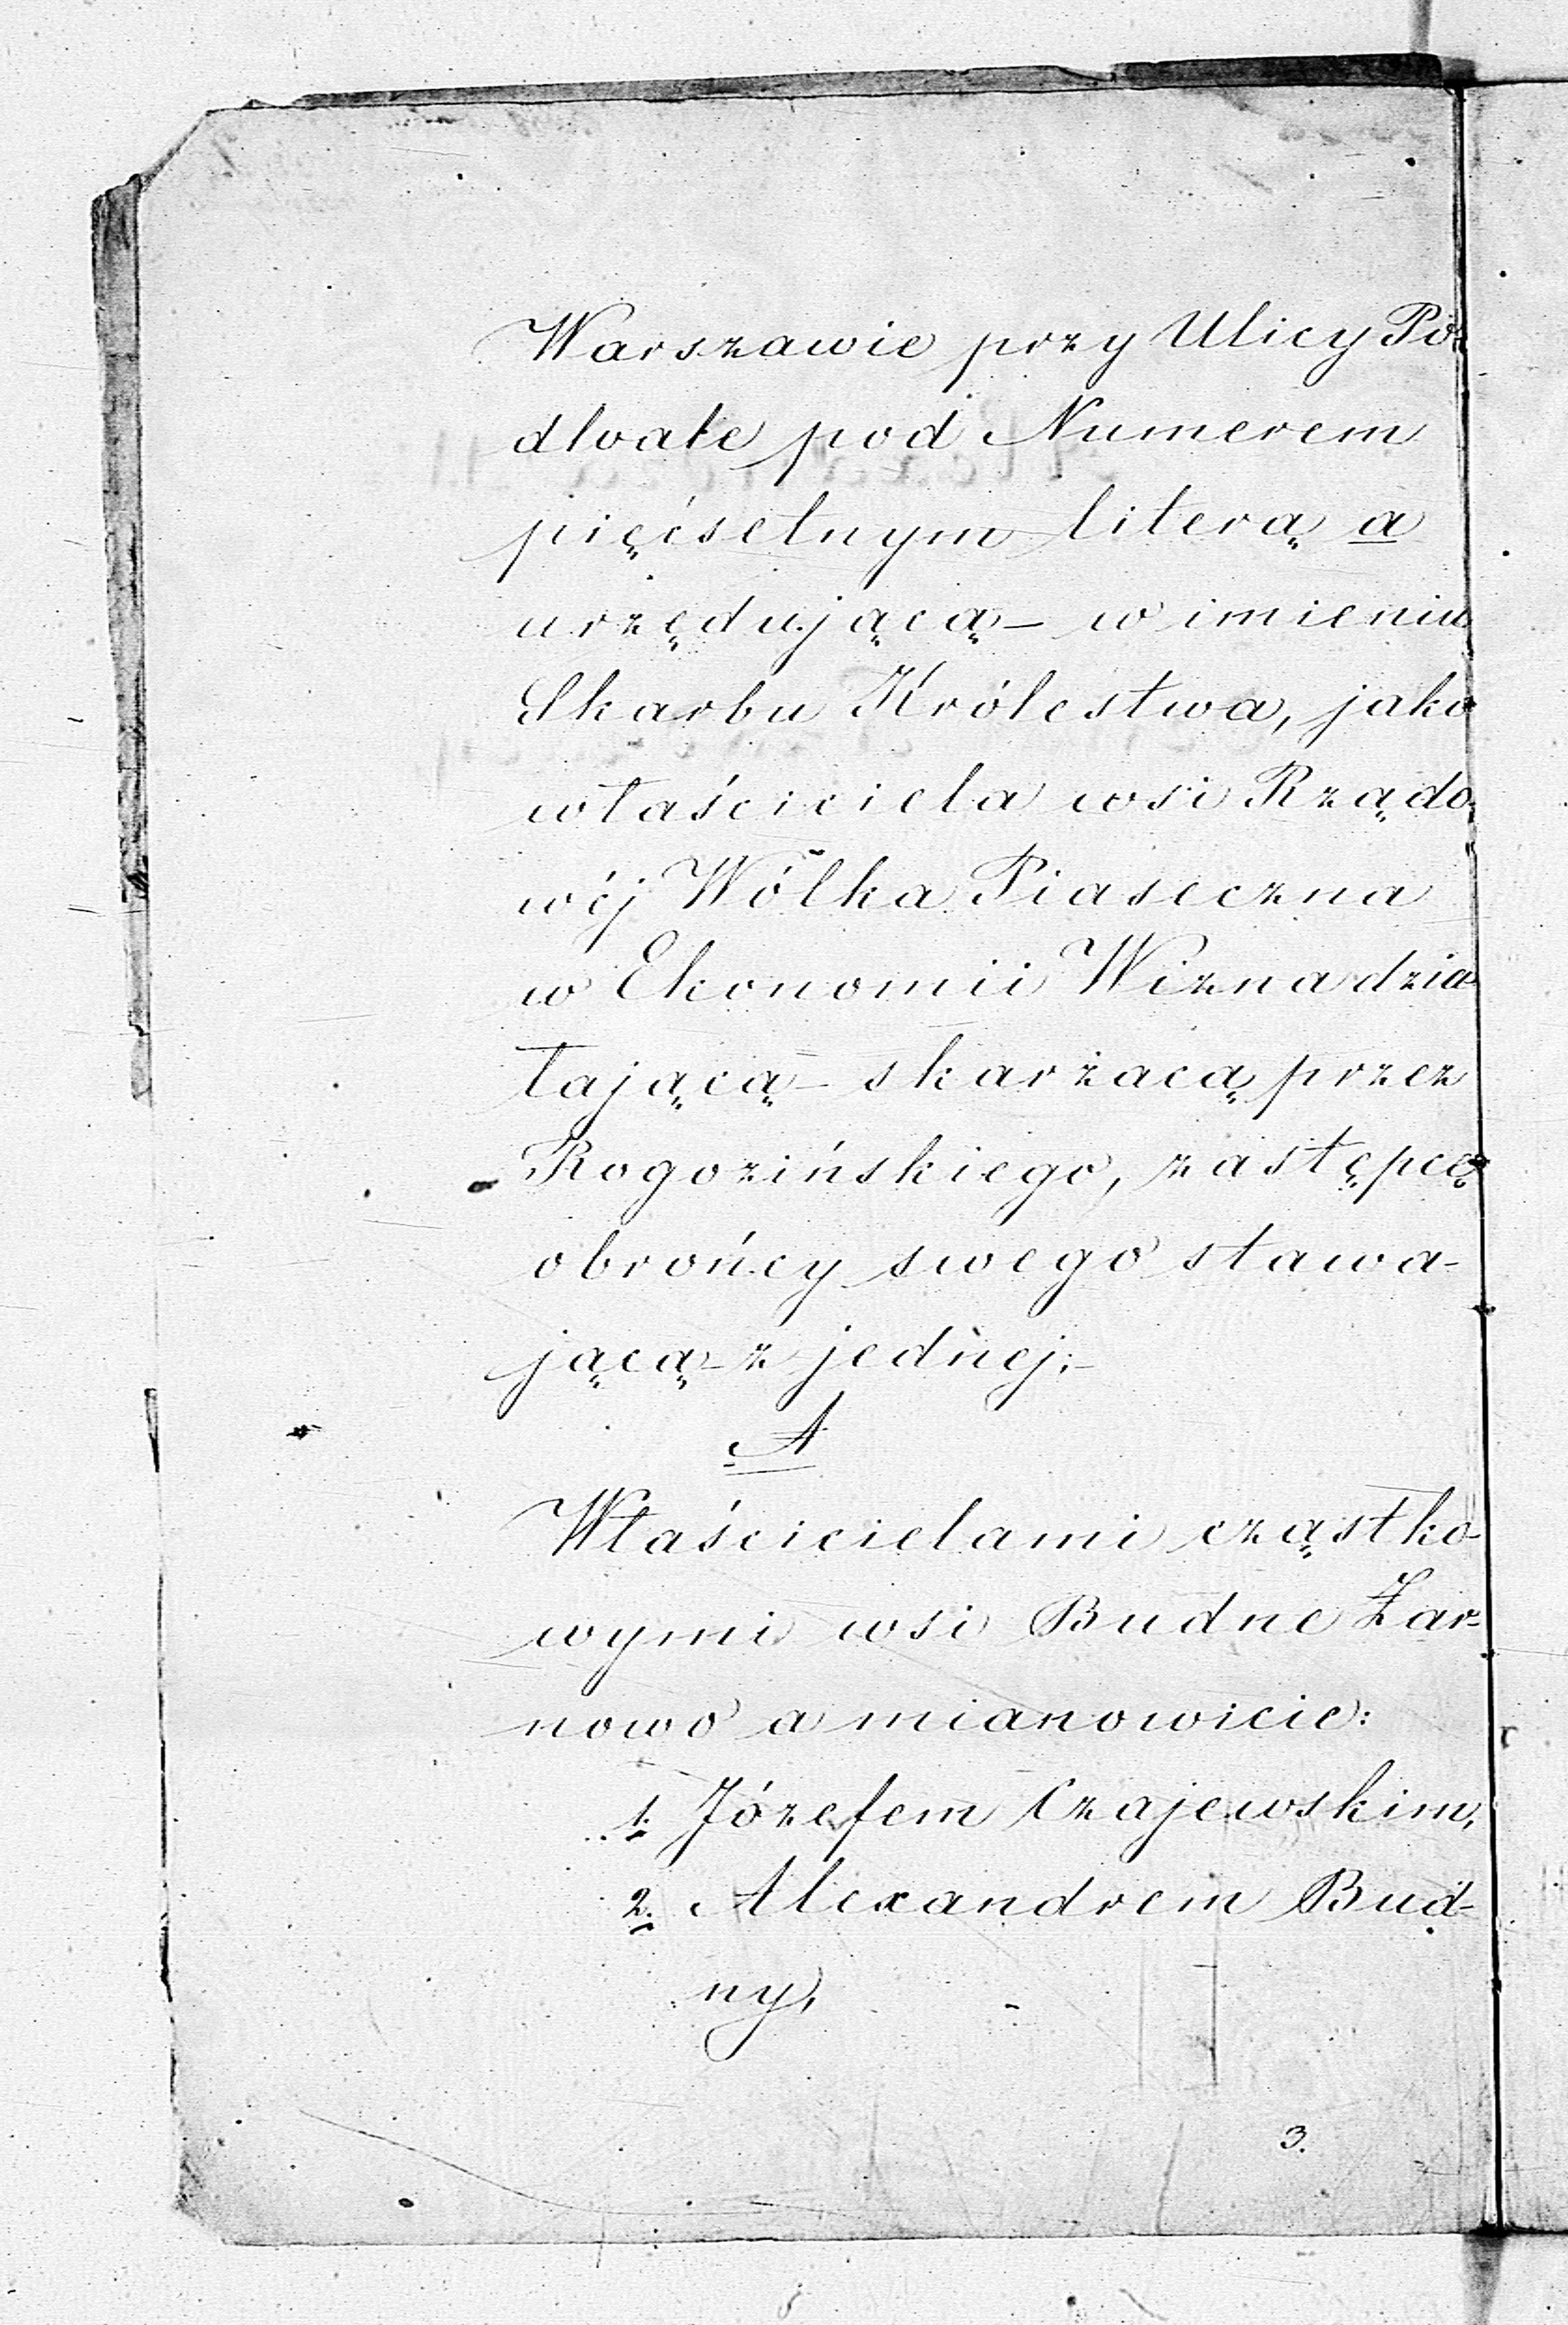 Warszawie przy Ulicy Po-
dwale pod Numerem
pięćsetnym literą a
urzędującą – w imieniu
Skarbu Królestwa, jako
właściciela wsi Rządo-
wéj Wólka Piaseczna
w Ekonomii Wizna dzia-
łającą – skarżacą przez
Rogozińskiego, zastępcę
obrońcy swego stawa-
jącą – z jednej; –
A
Właścicielami cząstko-
wymi wsi Budne Żar-
nowo a mianowicie:
1. Józefem Czajewskim,
2. Alexandrem Bud-
ny,
3.